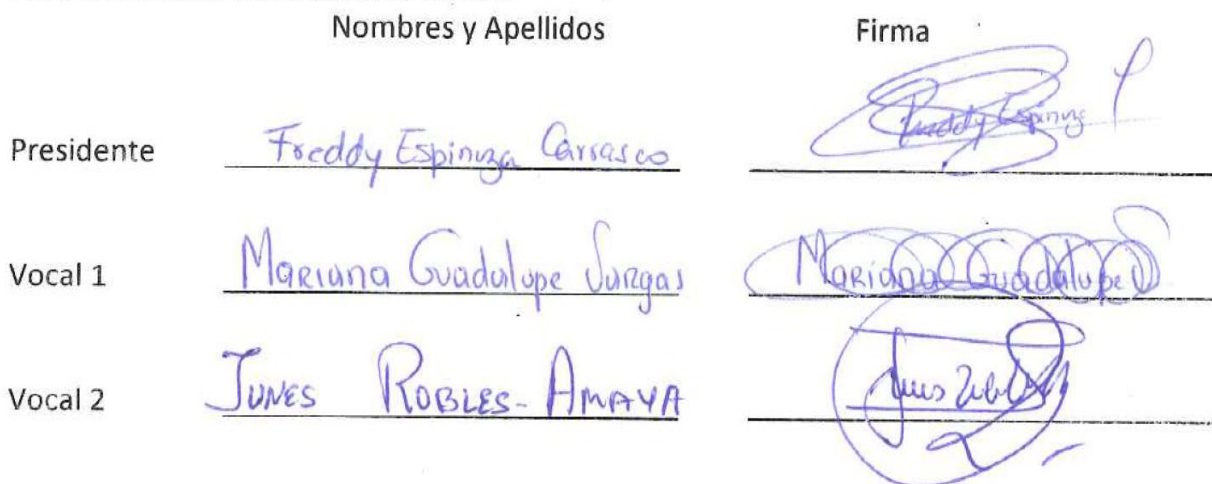 Nombres y Apellidos Firma
Presidente Freddy Espinoza Carrasco Freddy Espinoza
Vocal 1 Mariana Guadalupe Vargas Mariana Guadalupe V
Vocal 2 JUNES ROBLES-AMAYA